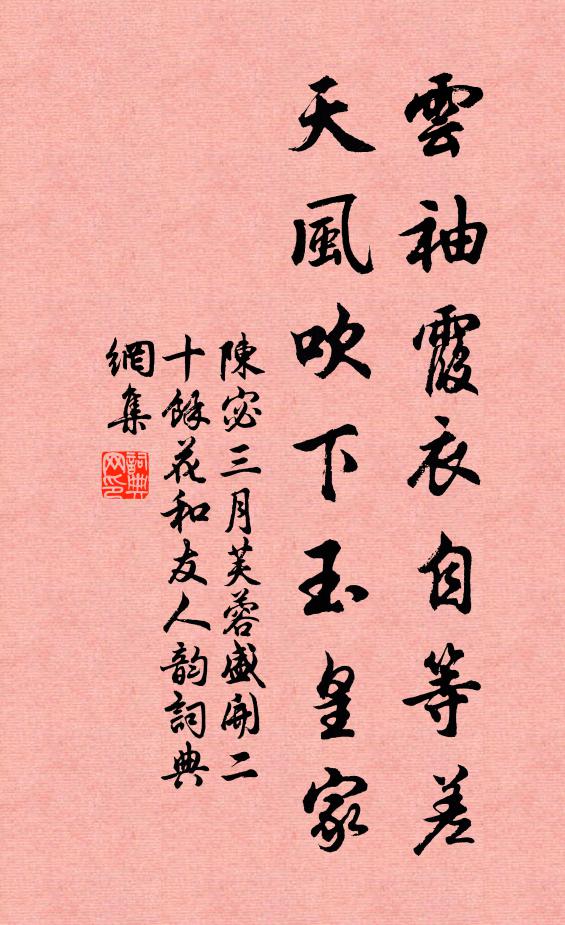 雲袖霞衣自等差
天風吹下玉皇家
陳宓三月芙蓉盛開二
十餘花和友人韵詞典
網集
詞典网印